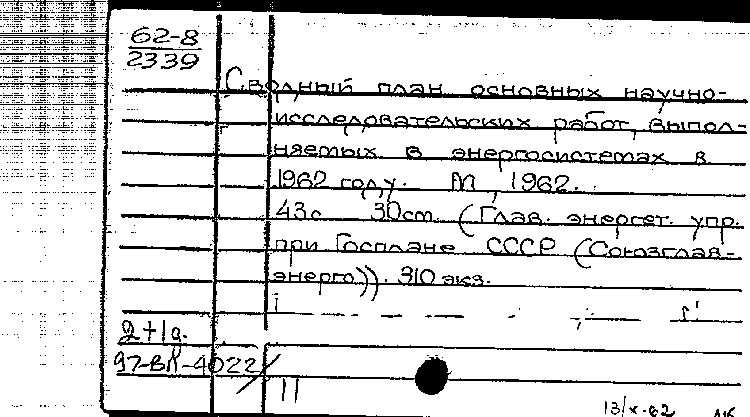 62-8
2339
Сводный план основных научно-
исследовательских работ, выпол-
няемых в энергосистемах в
1962 году. М, 1962.
43с 30см (Глав. энергет. упр.
при Госплане СССР (Союзглав-
энерго)). 310 экз.
2+1а.
97-ВЛ-4022
11
13/X-62